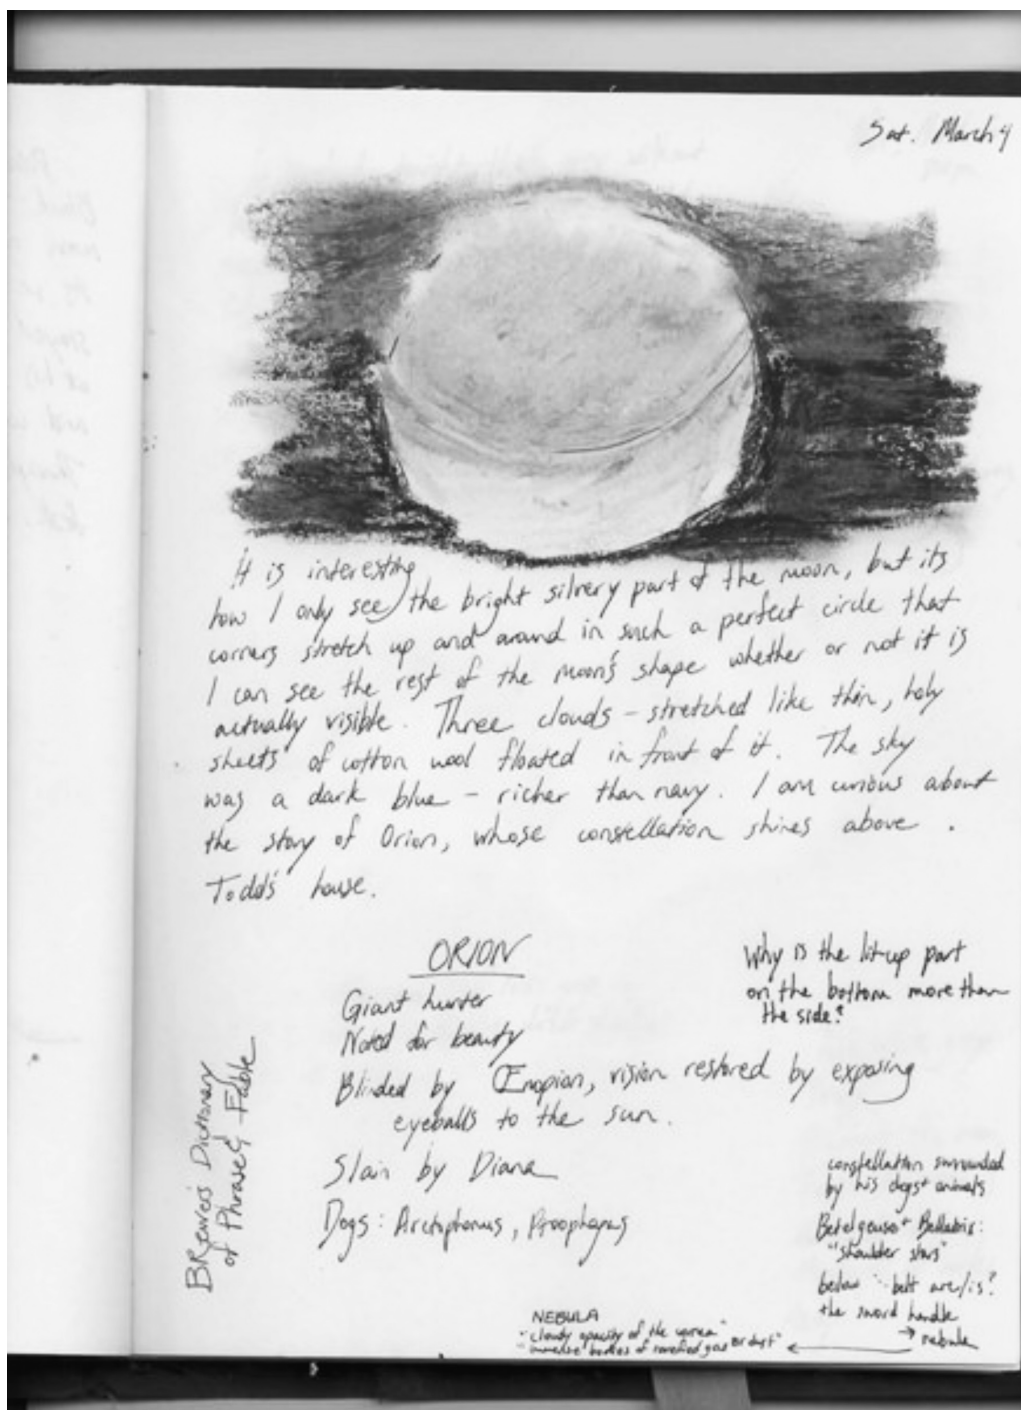 Sat. March 4
It is interesting
how I only see the bright silvery part of the moon, but its
corners stretch up and around in such a perfect circle that
I can see the rest of the moon's shape whether or not it is
actually visible. Three clouds - stretched like thin, holy
sheets of cotton wool floated in front of it. The sky
was a dark blue - richer than navy. I am curious about
the story of Orion, whose constellation shines above
Todd's house.
ORION
Giant hunter
Noted for beauty
Blinded by Œnopion, vision restored by exposing
eyeballs to the sun.
Slain by Diana
Dogs: Arctophonus, Ptoophagus
Brewer's Dictionary
of Phrase & Fable
Why is the lit-up part
on the bottom more than
the side?
constellation surrounded
by his dogs + animals
Betelgeuse + Bellatrix:
"shoulder stars"
below belt are/is?
the sword handle
→ nebula
NEBULA
"cloudy opacity of the cornea"
"immense bodies of rarefied gas or dust"